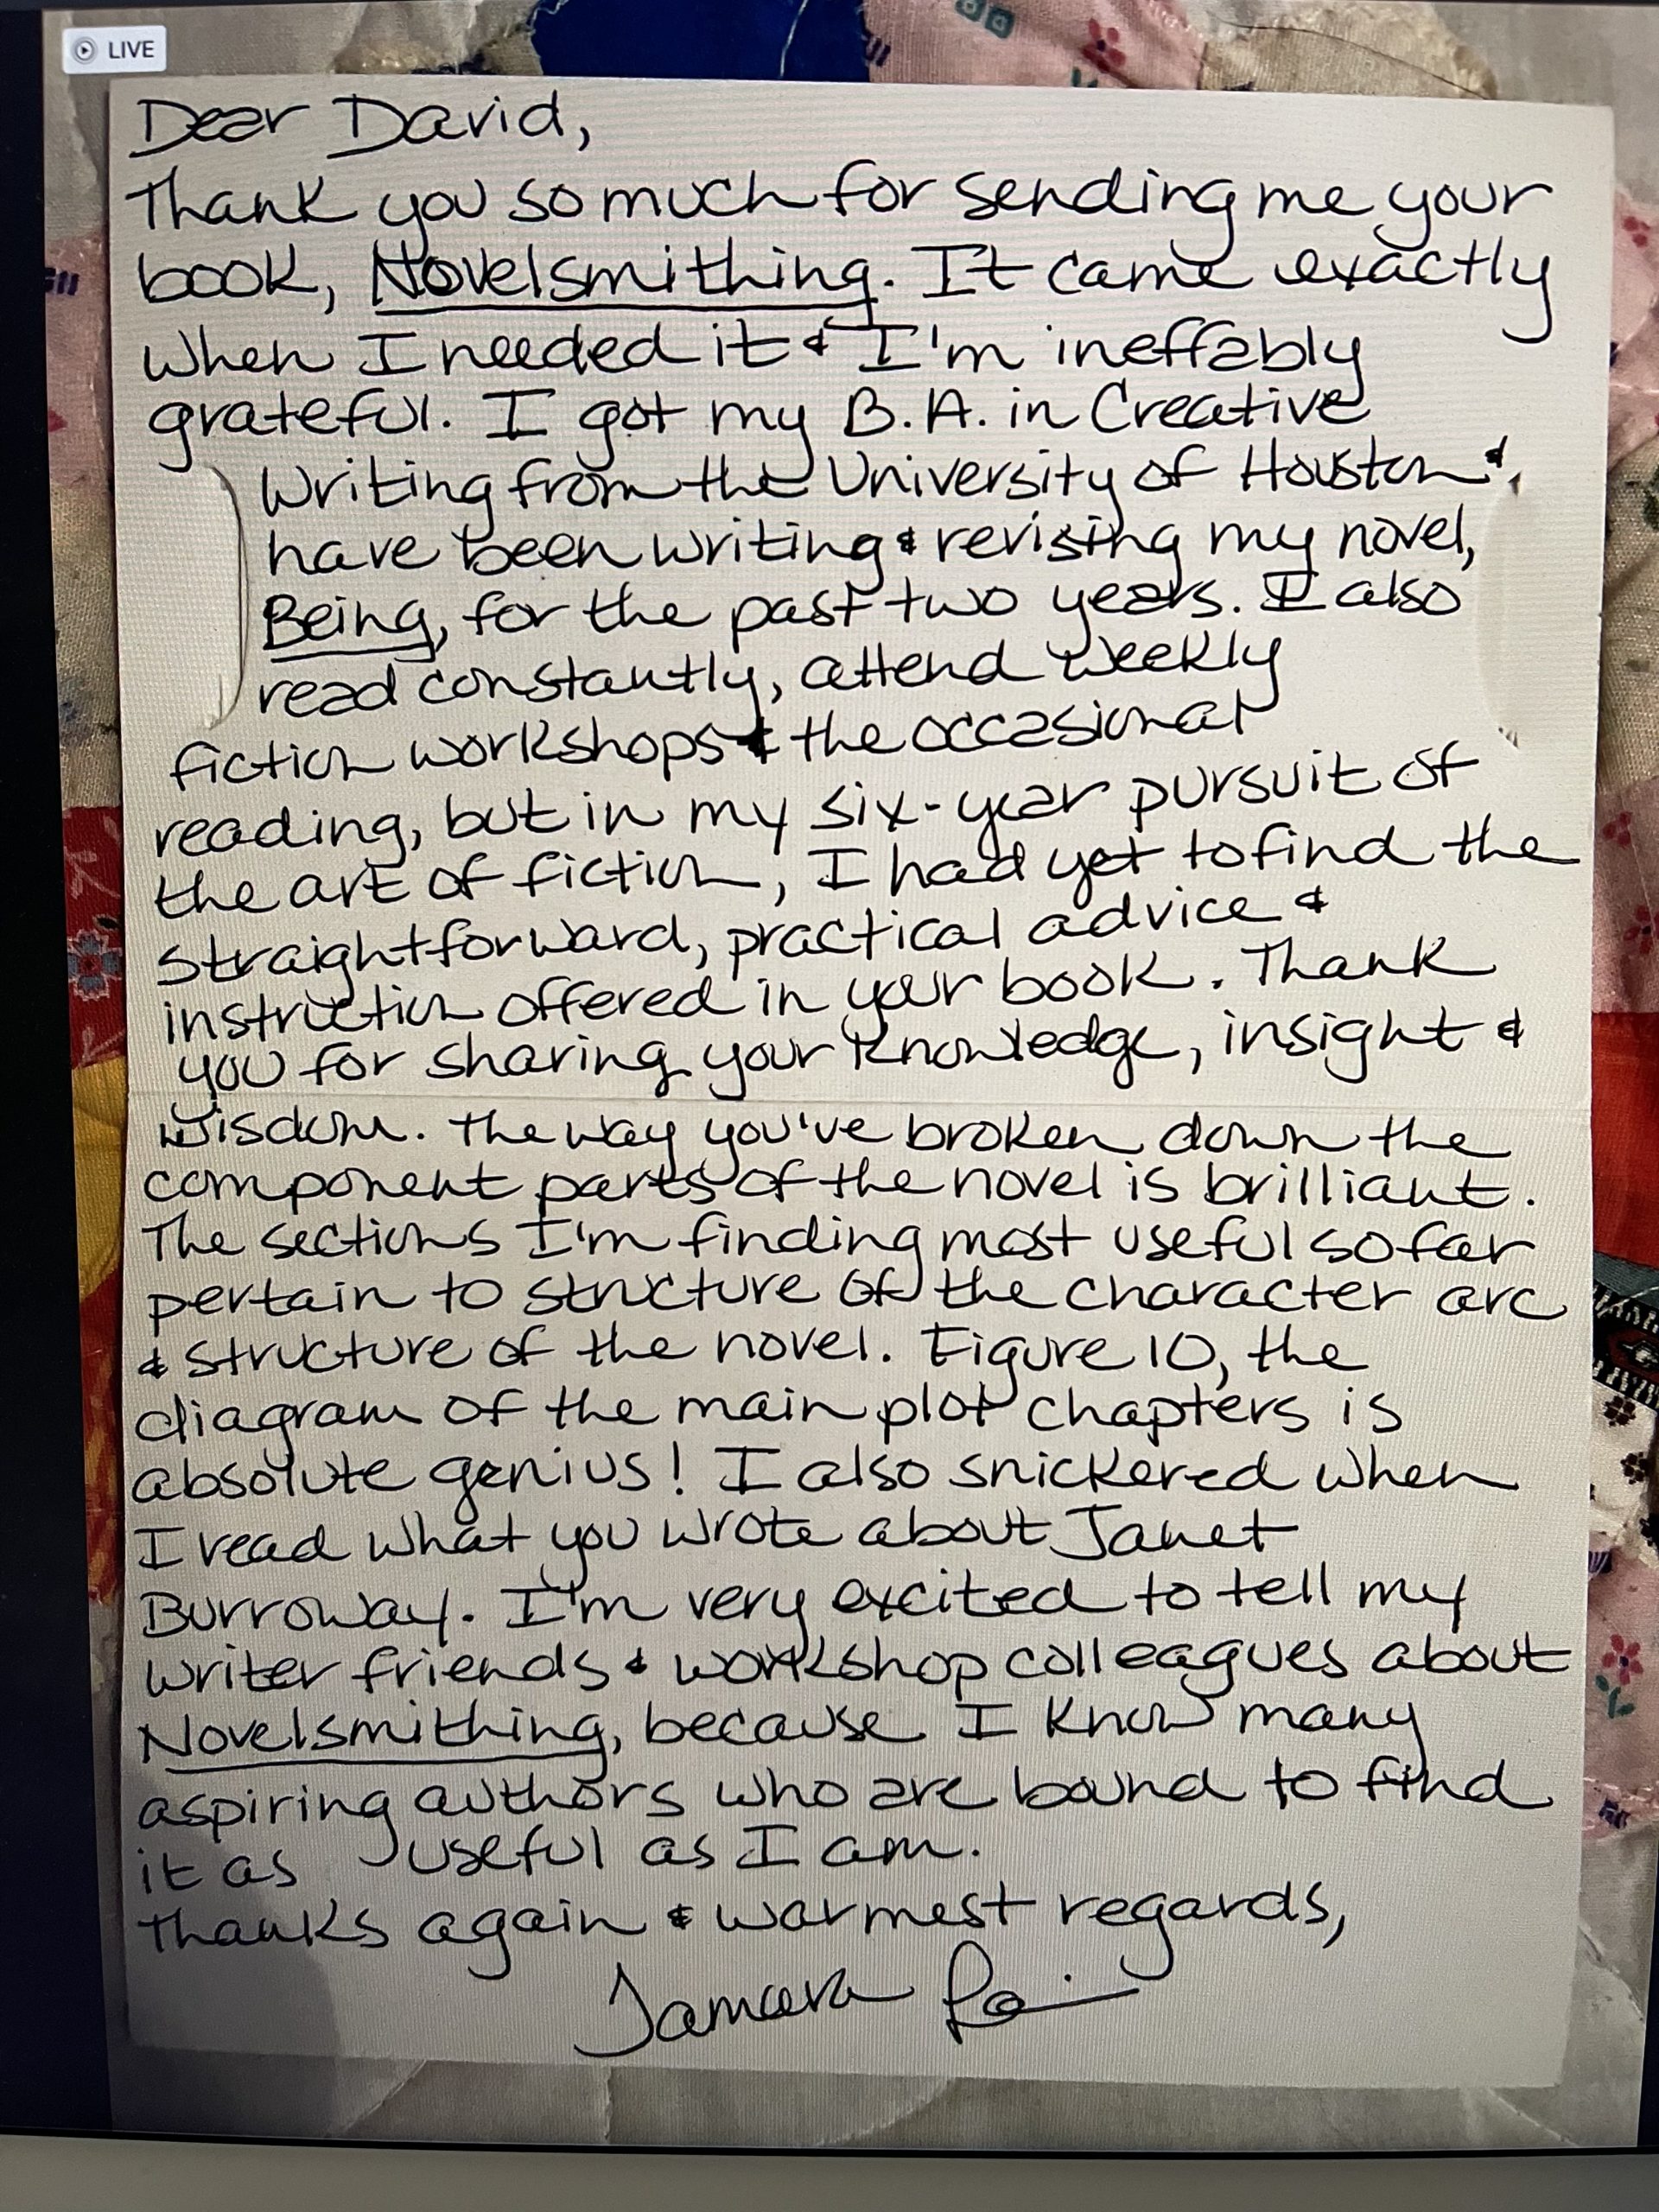 LIVE
Dear David,
Thank you so much for sending me your
book, Novelsmithing. It came exactly
when I needed it & I'm ineffably
grateful. I got my B.A. in Creative
Writing from the University of Houston &
have been writing & revising my novel,
Being, for the past two years. I also
read constantly, attend weekly
fiction workshops & the occasional
reading, but in my six-year pursuit of
the art of fiction, I had yet to find the
straightforward, practical advice &
instruction offered in your book. Thank
you for sharing your knowledge, insight &
wisdom. The way you've broken down the
component parts of the novel is brilliant.
The sections I'm finding most useful so far
pertain to structure of the character arc
& structure of the novel. Figure 10, the
diagram of the main plot chapters is
absolute genius! I also snickered when
I read what you wrote about Janet
Burroway. I'm very excited to tell my
writer friends & workshop colleagues about
Novelsmithing, because I know many
aspiring authors who are bound to find
it as useful as I am.
Thanks again & warmest regards,
Tamara